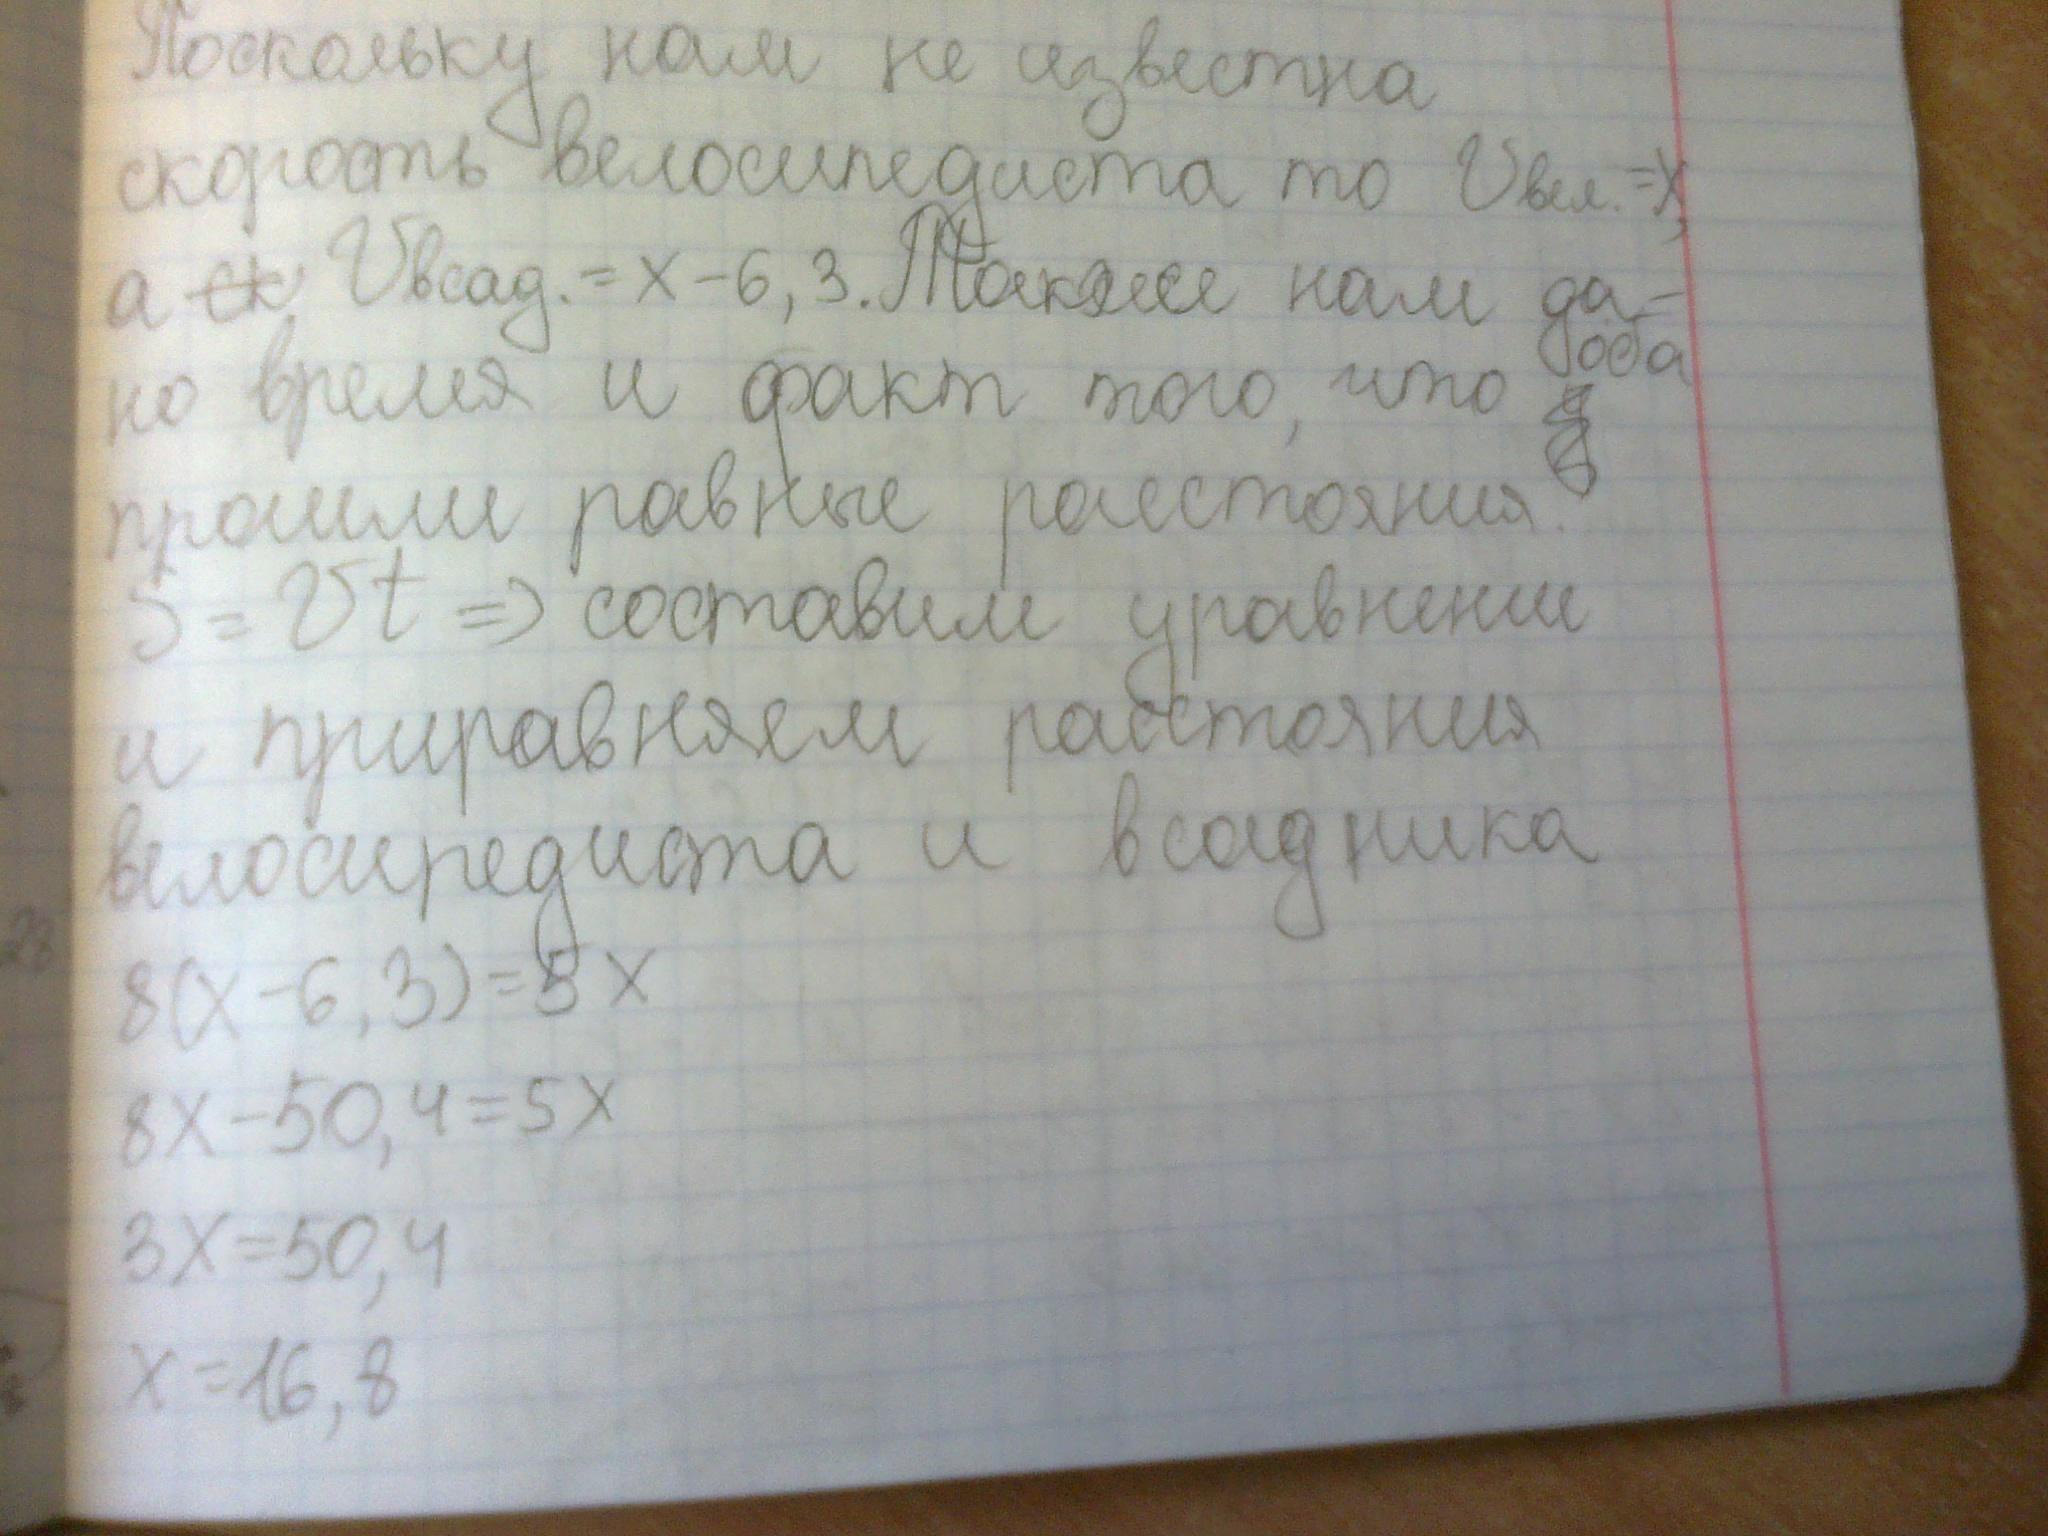 Поскольку нам не известна
скорость велосипедиста то Vвел.=x,
а Vвсад.=x-6,3. Также нам да-
но время и факт того, что оба
прошли равные расстояния.
S=Vt => составим уравнение
и приравняем расстояния
велосипедиста и всадника
8(x-6,3)=5x
8x-50,4=5x
3x=50,4
x=16,8